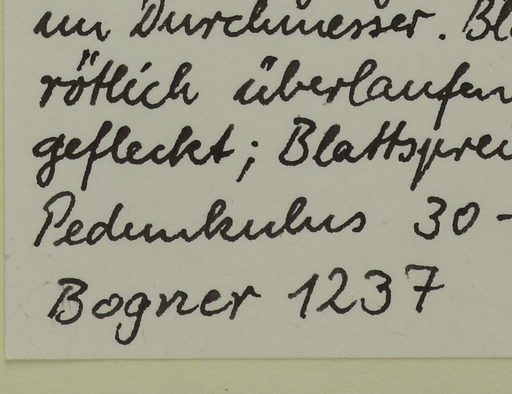 im Durchmesser. Bl
rötlich überlaufen
gefleckt; Blattsprei
Pedunkulus 30-
Bogner 1237